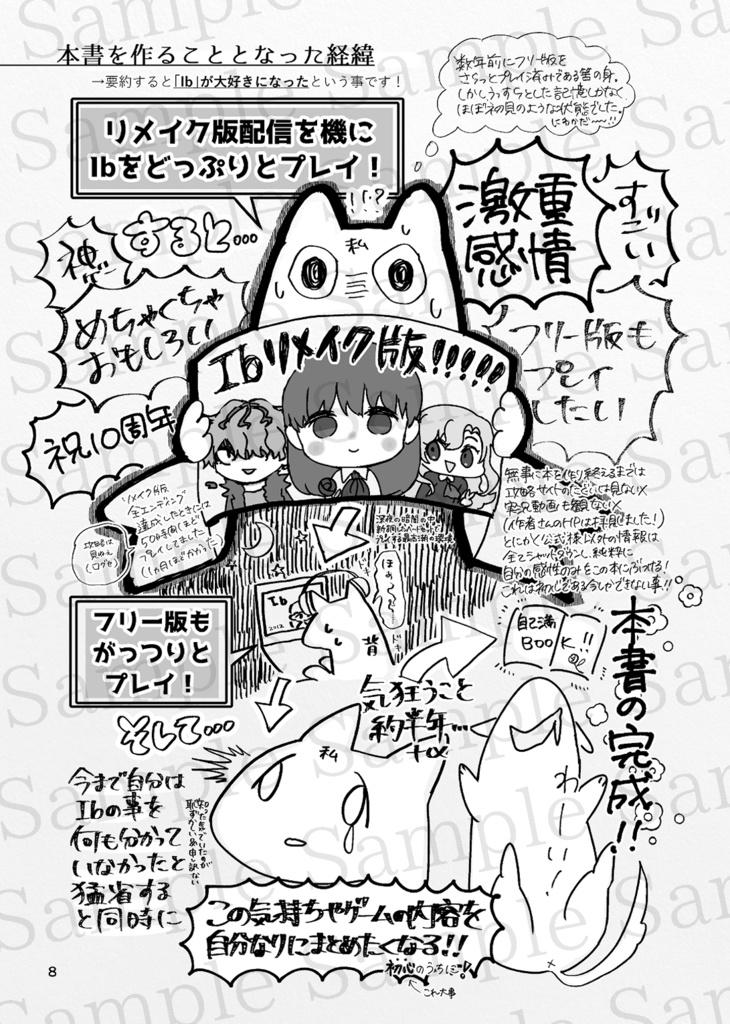 本書を作ることとなった経緯
→要約すると「Ib」が大好きになったという事です！
数年前にフリー版を
さらっとプレイ済みである筈の身。
しかしうっすらとした記憶しかなく
ほぼ初見のような状態でした。
にわかだ〜〜!!
リメイク版配信を機に
Ibをどっぷりとプレイ！
!!?
すると…
神
めちゃくちゃ
おもしろい
祝10周年
激重
感情
すごい
フリー版も
プレイ
したい
私
Ibリメイク版!!!!!
リメイク版
全エンディング
達成したときには
50時間ほど
プレイしてました
(1ヶ月ほどかかった)
攻略は
見ねぇ
深夜の暗闇の中
無事に本を作り終えるまでは
攻略サイトのたぐいは見ない×
実況動画も観ない×
(作者さんのHPは拝見しました!)
とにかく公式様以外の情報は
全てシャットダウンし、純粋に
自分の感性のみをこの本にぶつける!
これは初心者である今しかできない事!!
Ib
2012
ほぁ〜…
ドキ
背
フリー版も
がっつりと
プレイ！
自己満
BOOK!!
本書の完成!!
気狂うこと
約半年…
+α
そして…
私
わーい!
今まで自分は
Ibの事を
何も分かって
いなかったと
猛省する
と同時に
この気持ちやゲームの内容を
自分なりにまとめたくなる!!
初心のうちに!
これ大事
8
Sample